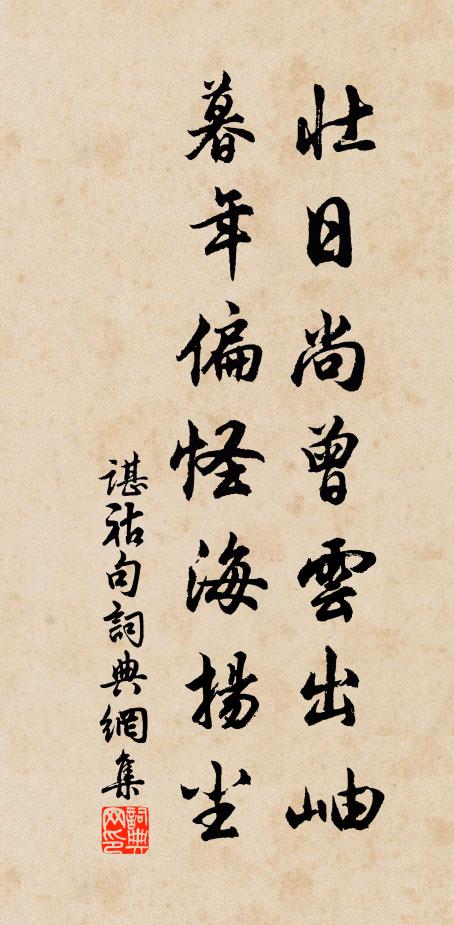 壮日尚曾雲出岫
暮年偏怪海揚尘
谌祜句詞典網集
詞典网印